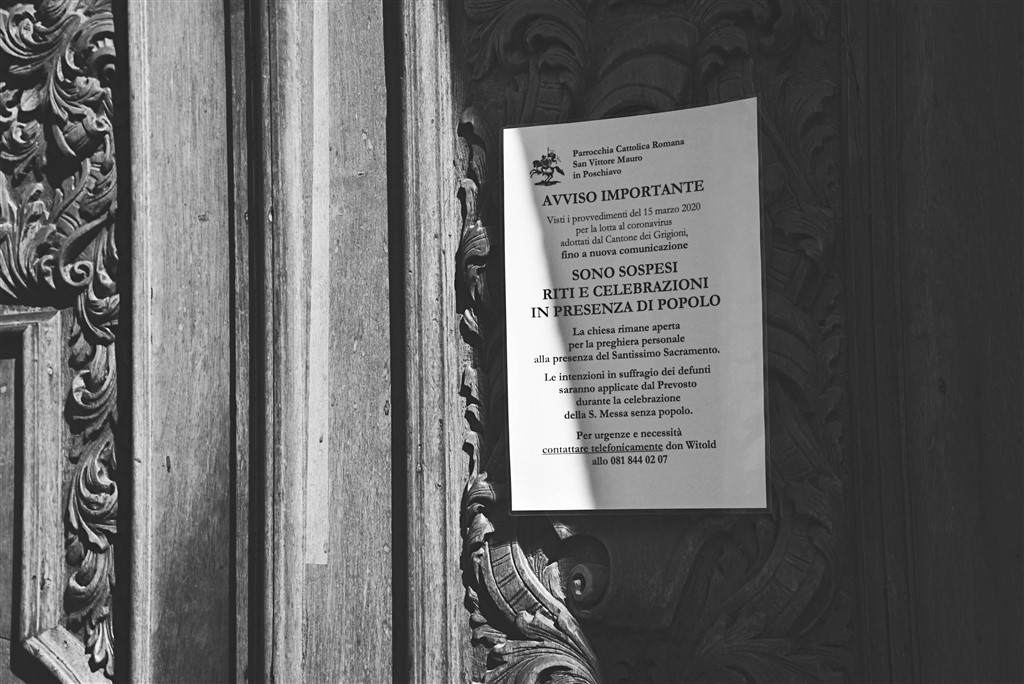 Parrocchia Cattolica Romana
San Vittore Mauro
in Poschiavo
AVVISO IMPORTANTE
Visti i provvedimenti del 15 marzo 2020
per la lotta al coronavirus
adottati dal Cantone dei Grigioni,
fino a nuova comunicazione
SONO SOSPESI
RITI E CELEBRAZIONI
IN PRESENZA DI POPOLO
La chiesa rimane aperta
per la preghiera personale
alla presenza del Santissimo Sacramento.
Le intenzioni in suffragio dei defunti
saranno applicate dal Prevosto
durante la celebrazione
della S. Messa senza popolo.
Per urgenze e necessità
contattare telefonicamente don Witold
allo 081 844 02 07